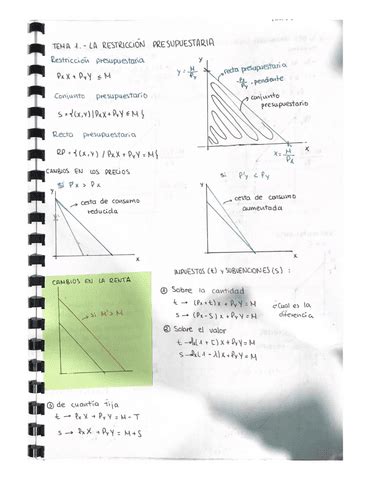 TEMA 1.- LA RESTRICCIÓN PRESUPUESTARIA
Restricción presupuestaria
PxX + PyY ≤ M
Conjunto presupuestario
S = {(x,y) / PxX + PyY ≤ M}
Recta presupuestaria
RP = {(x,y) / PxX + PyY = M}
y
y = M/Py
recta presupuestaria
Px/Py pendente
conjunto
presupuestario
x = M/Px
x
CAMBIOS EN LOS PRECIOS
si P'x > Px
y
cesta de consumo
reducida
x
si P'y < Py
y
cesta de consumo
aumentada
x
CAMBIOS EN LA RENTA
si M' > M
IMPUESTOS (t) Y SUBVENCIONES (s) :
① Sobre la cantidad
t → (Px+t)X + PyY = M
s → (Px-s)X + PyY = M
¿Cuál es la
diferencia
② Sobre el valor
t → Px(1+τ)X + PyY = M
s → Px(1-s)X + PyY = M
③ de cuantía fija
t → PxX + PyY = M-T
s → PxX + PyY = M+S